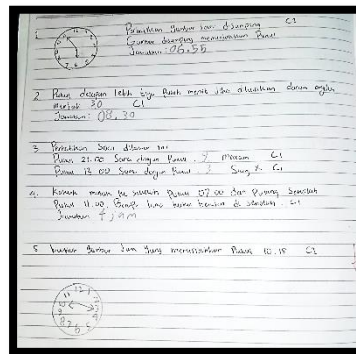 1. Perhatikan gambar jam disamping C1
Gambar disamping menunjukkan Pukul
Jawaban: 06.55
2 Pukul delapan lebih tiga puluh menit jika dituliskan dalam angka
30 C1
Jawaban: 08.30
3 Perhatikan Soal dibawah ini
Pukul 21.00 Sama dengan Pukul 9 malam C1
Pukul 13.00 Sama dengan Pukul Siang C1
4. ke sekolah Pukul 07.00 dan Pulang Sekolah
Pukul 11.00. berada di sekolah. C1
Jawaban 4 jam
5 Gambar Jam Yang menunjukkan Pukul 10.15 C2